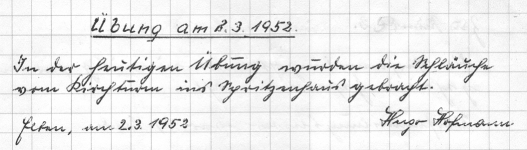 Übung am 2.3.1952.
In der heutigen Übung wurden die Schläuche
vom Kirchturm ins Spritzenhaus gebracht.
Elben, am 2.3.1952
Hugo Hofmann